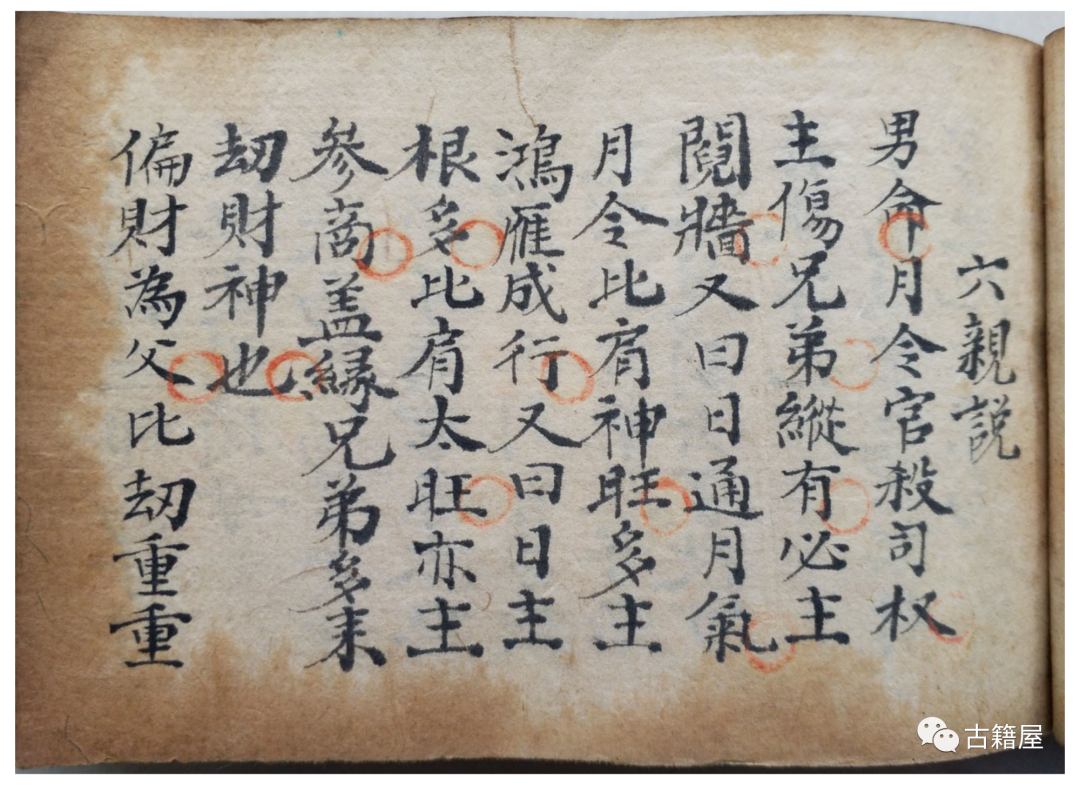 六親説
男命月令官殺司权
主傷兄弟縱有必主
鬩牆又曰日通月氣
月令比肩神旺多主
鴻雁成行又曰日主
根多比肩太旺亦主
參商蓋緣兄弟多来
劫財神也
偏財為父比劫重重
古籍屋